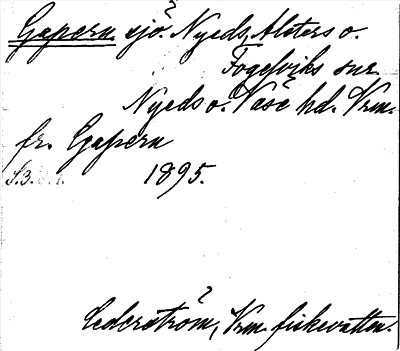 Gapern sjö. Nyeds, Alsters o.
Fogelviks snr
Nyeds o. Väse hd. Vrm.
fr. Gapern
1895.
Cederström, Vrm. fiskevatten.